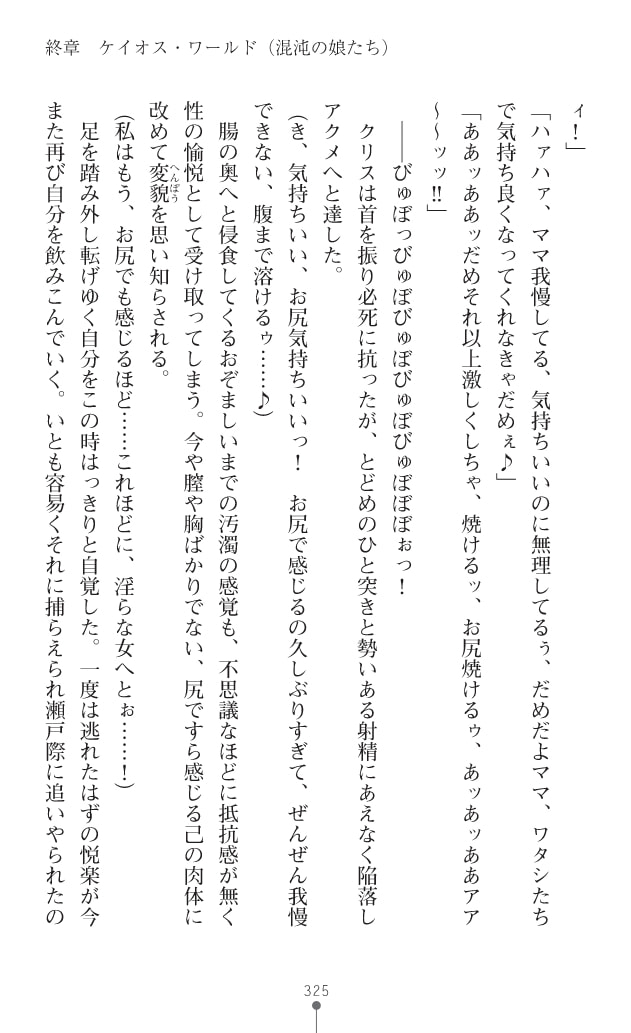 終章　ケイオス・ワールド（混沌の娘たち）
ィ！」
「ハァハァ、ママ我慢してる、気持ちいいのに無理してるぅ、だめだよママ、ワタシたち
で気持ち良くなってくれなきゃだめぇ♪」
「ああッああッだめそれ以上激しくしちゃ、焼けるッ、お尻焼けるゥ、あッあッああアア
～～ッッ!!」
――びゅぼっびゅぼびゅぼびゅぼぼぼぉっ！
クリスは首を振り必死に抗ったが、とどめのひと突きと勢いある射精にあえなく陥落し
アクメへと達した。
（き、気持ちいい、お尻気持ちいいっ！　お尻で感じるの久しぶりすぎて、ぜんぜん我慢
できない、腹まで溶けるゥ……♪）
腸の奥へと侵食してくるおぞましいまでの汚濁の感覚も、不思議なほどに抵抗感が無く
性の愉悦として受け取ってしまう。今や膣や胸ばかりでない、尻ですら感じる己の肉体に
改めて変貌へんぼうを思い知らされる。
（私はもう、お尻でも感じるほど……これほどに、淫らな女へとぉ……！）
足を踏み外し転げゆく自分をこの時はっきりと自覚した。一度は逃れたはずの悦楽が今
また再び自分を飲みこんでいく。いとも容易くそれに捕らえられ瀬戸際に追いやられたの
325